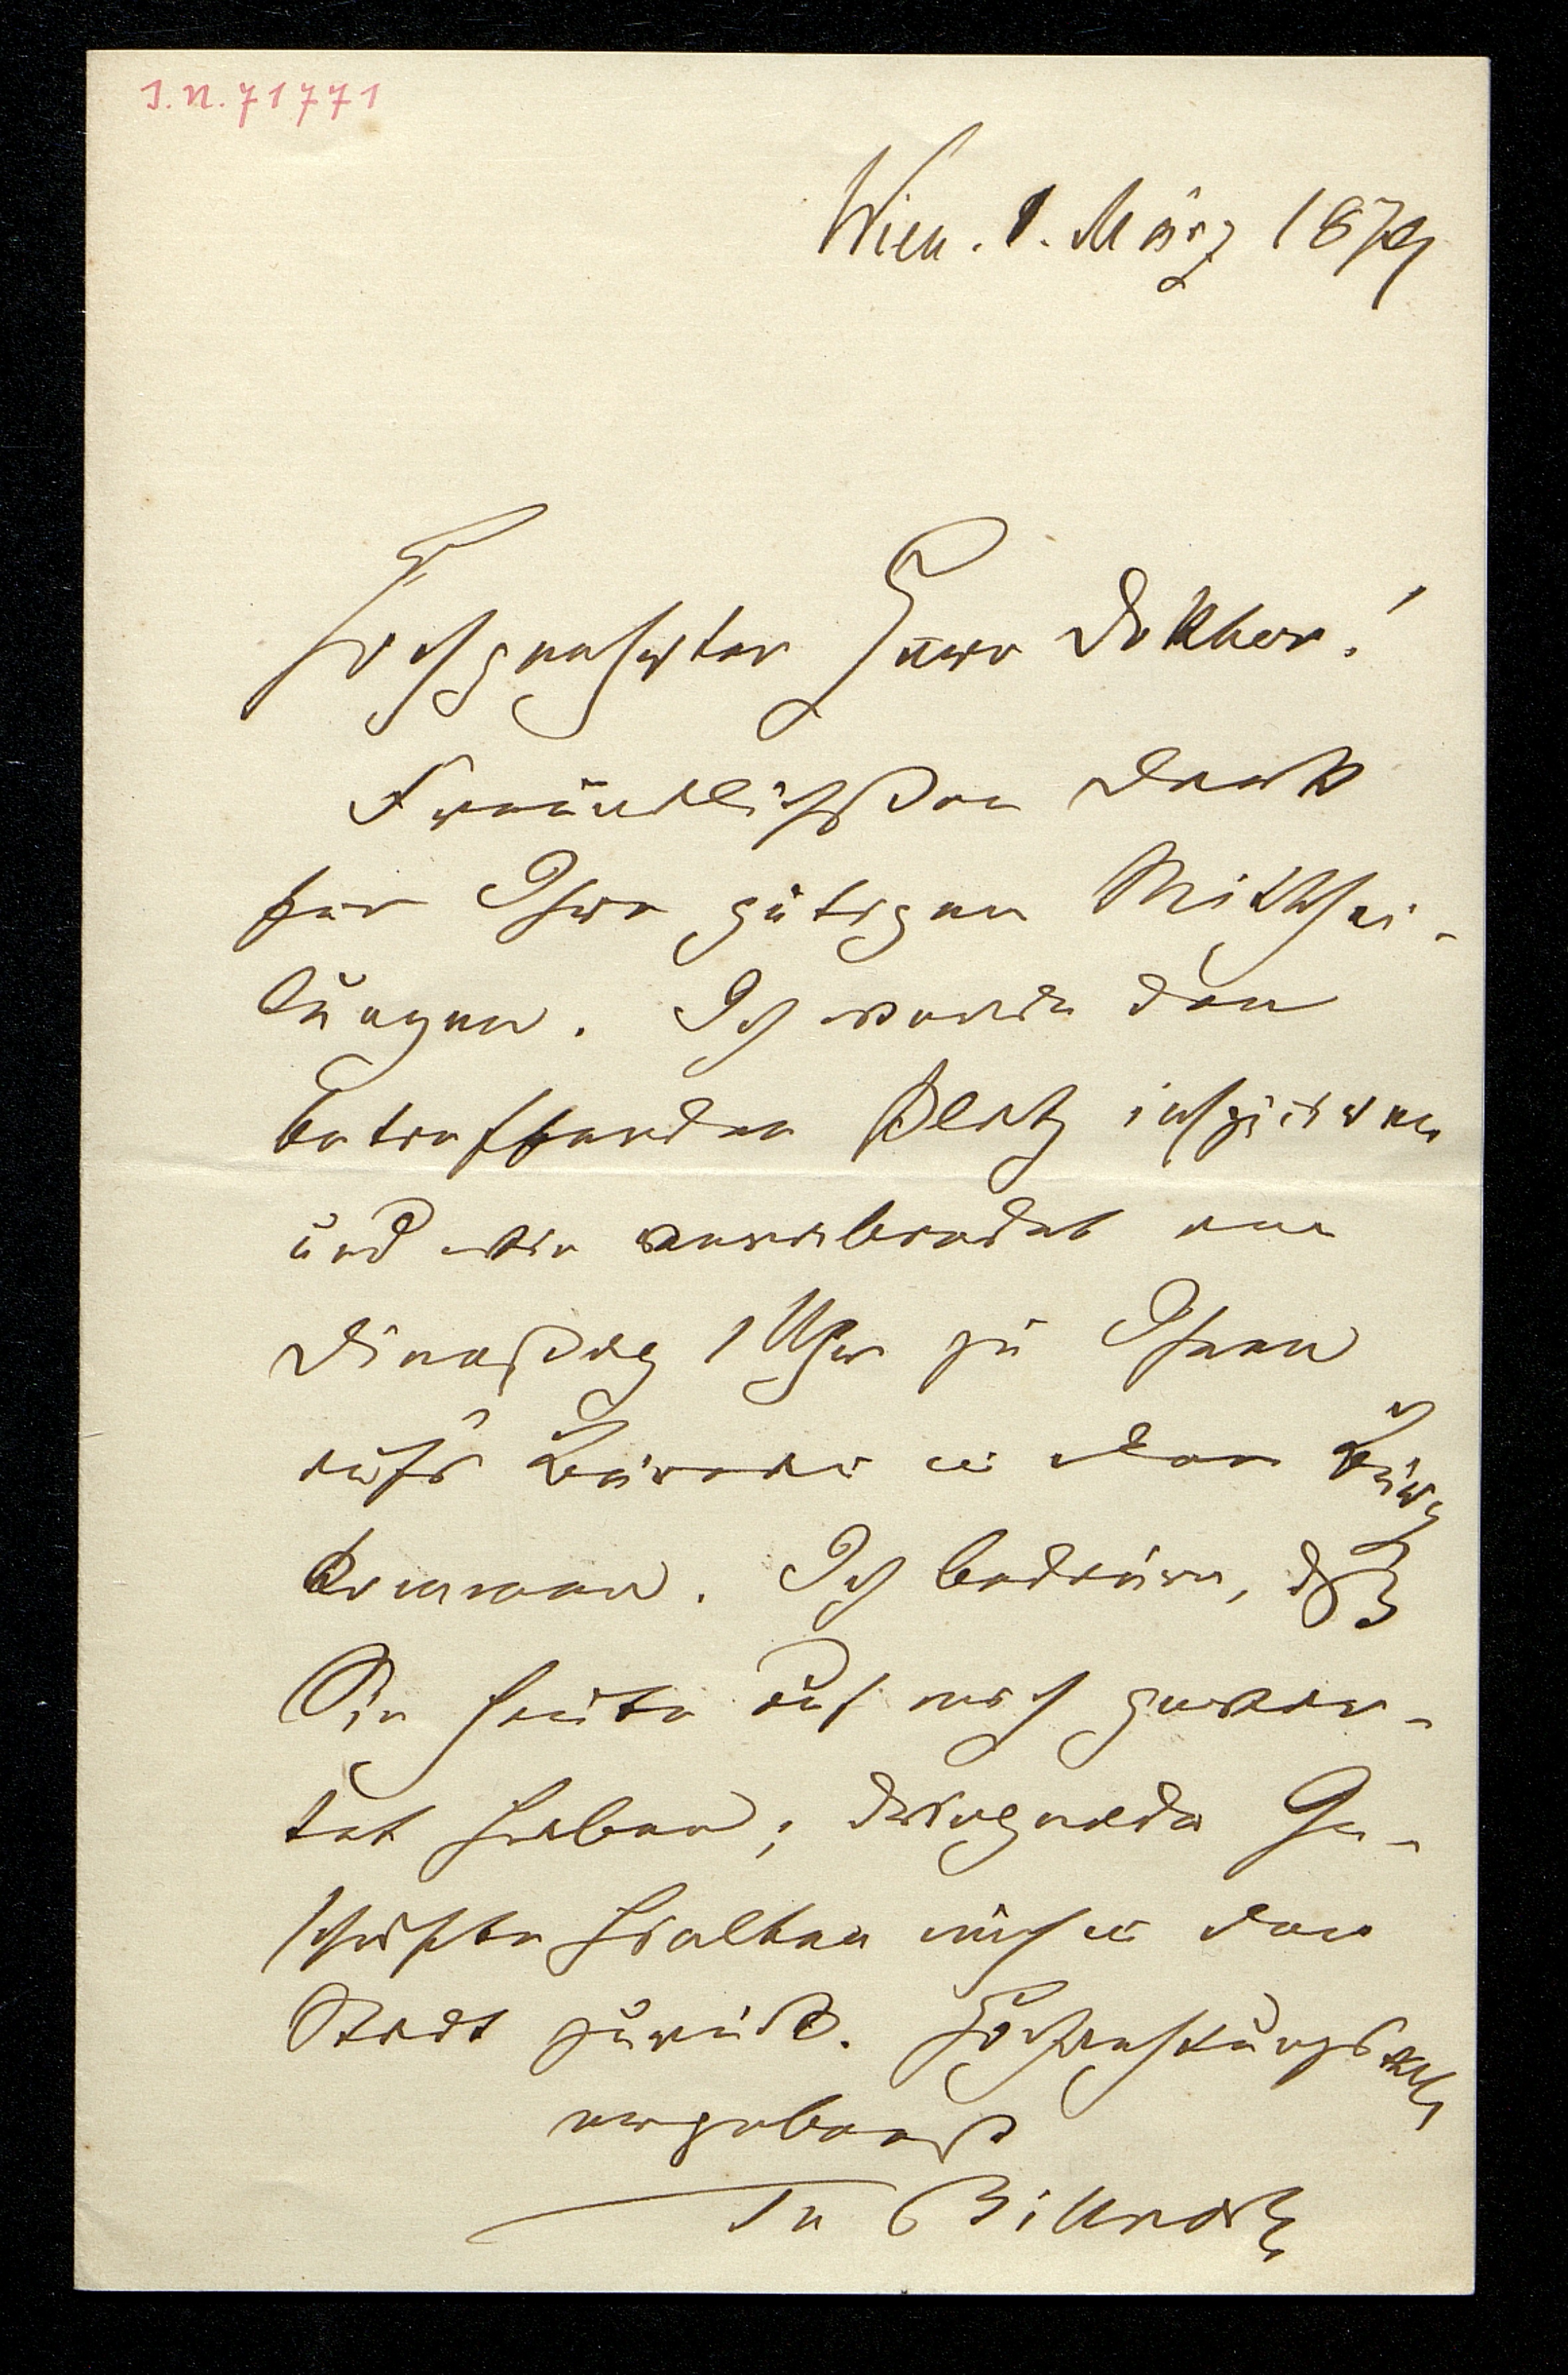 I.N. 71771
Wien. 1. März 1879
Hochgeehrter Herr Doktor!
Freundlichsten Dank
für Ihre gütigen Mitthei-
lungen. Ich werde den
betreffenden Platz inspiciren
und wie verabredet am
Dienstag 1 Uhr zu Ihnen
aufs Bureau in der Burg
kommen. Ich bedaure, daß
Sie heute auf mich gewar-
tet haben; dringende Ge-
schäfte hielten mich in der
Stadt zurück. Hochachtungsvoll
ergebenst
Th Billroth